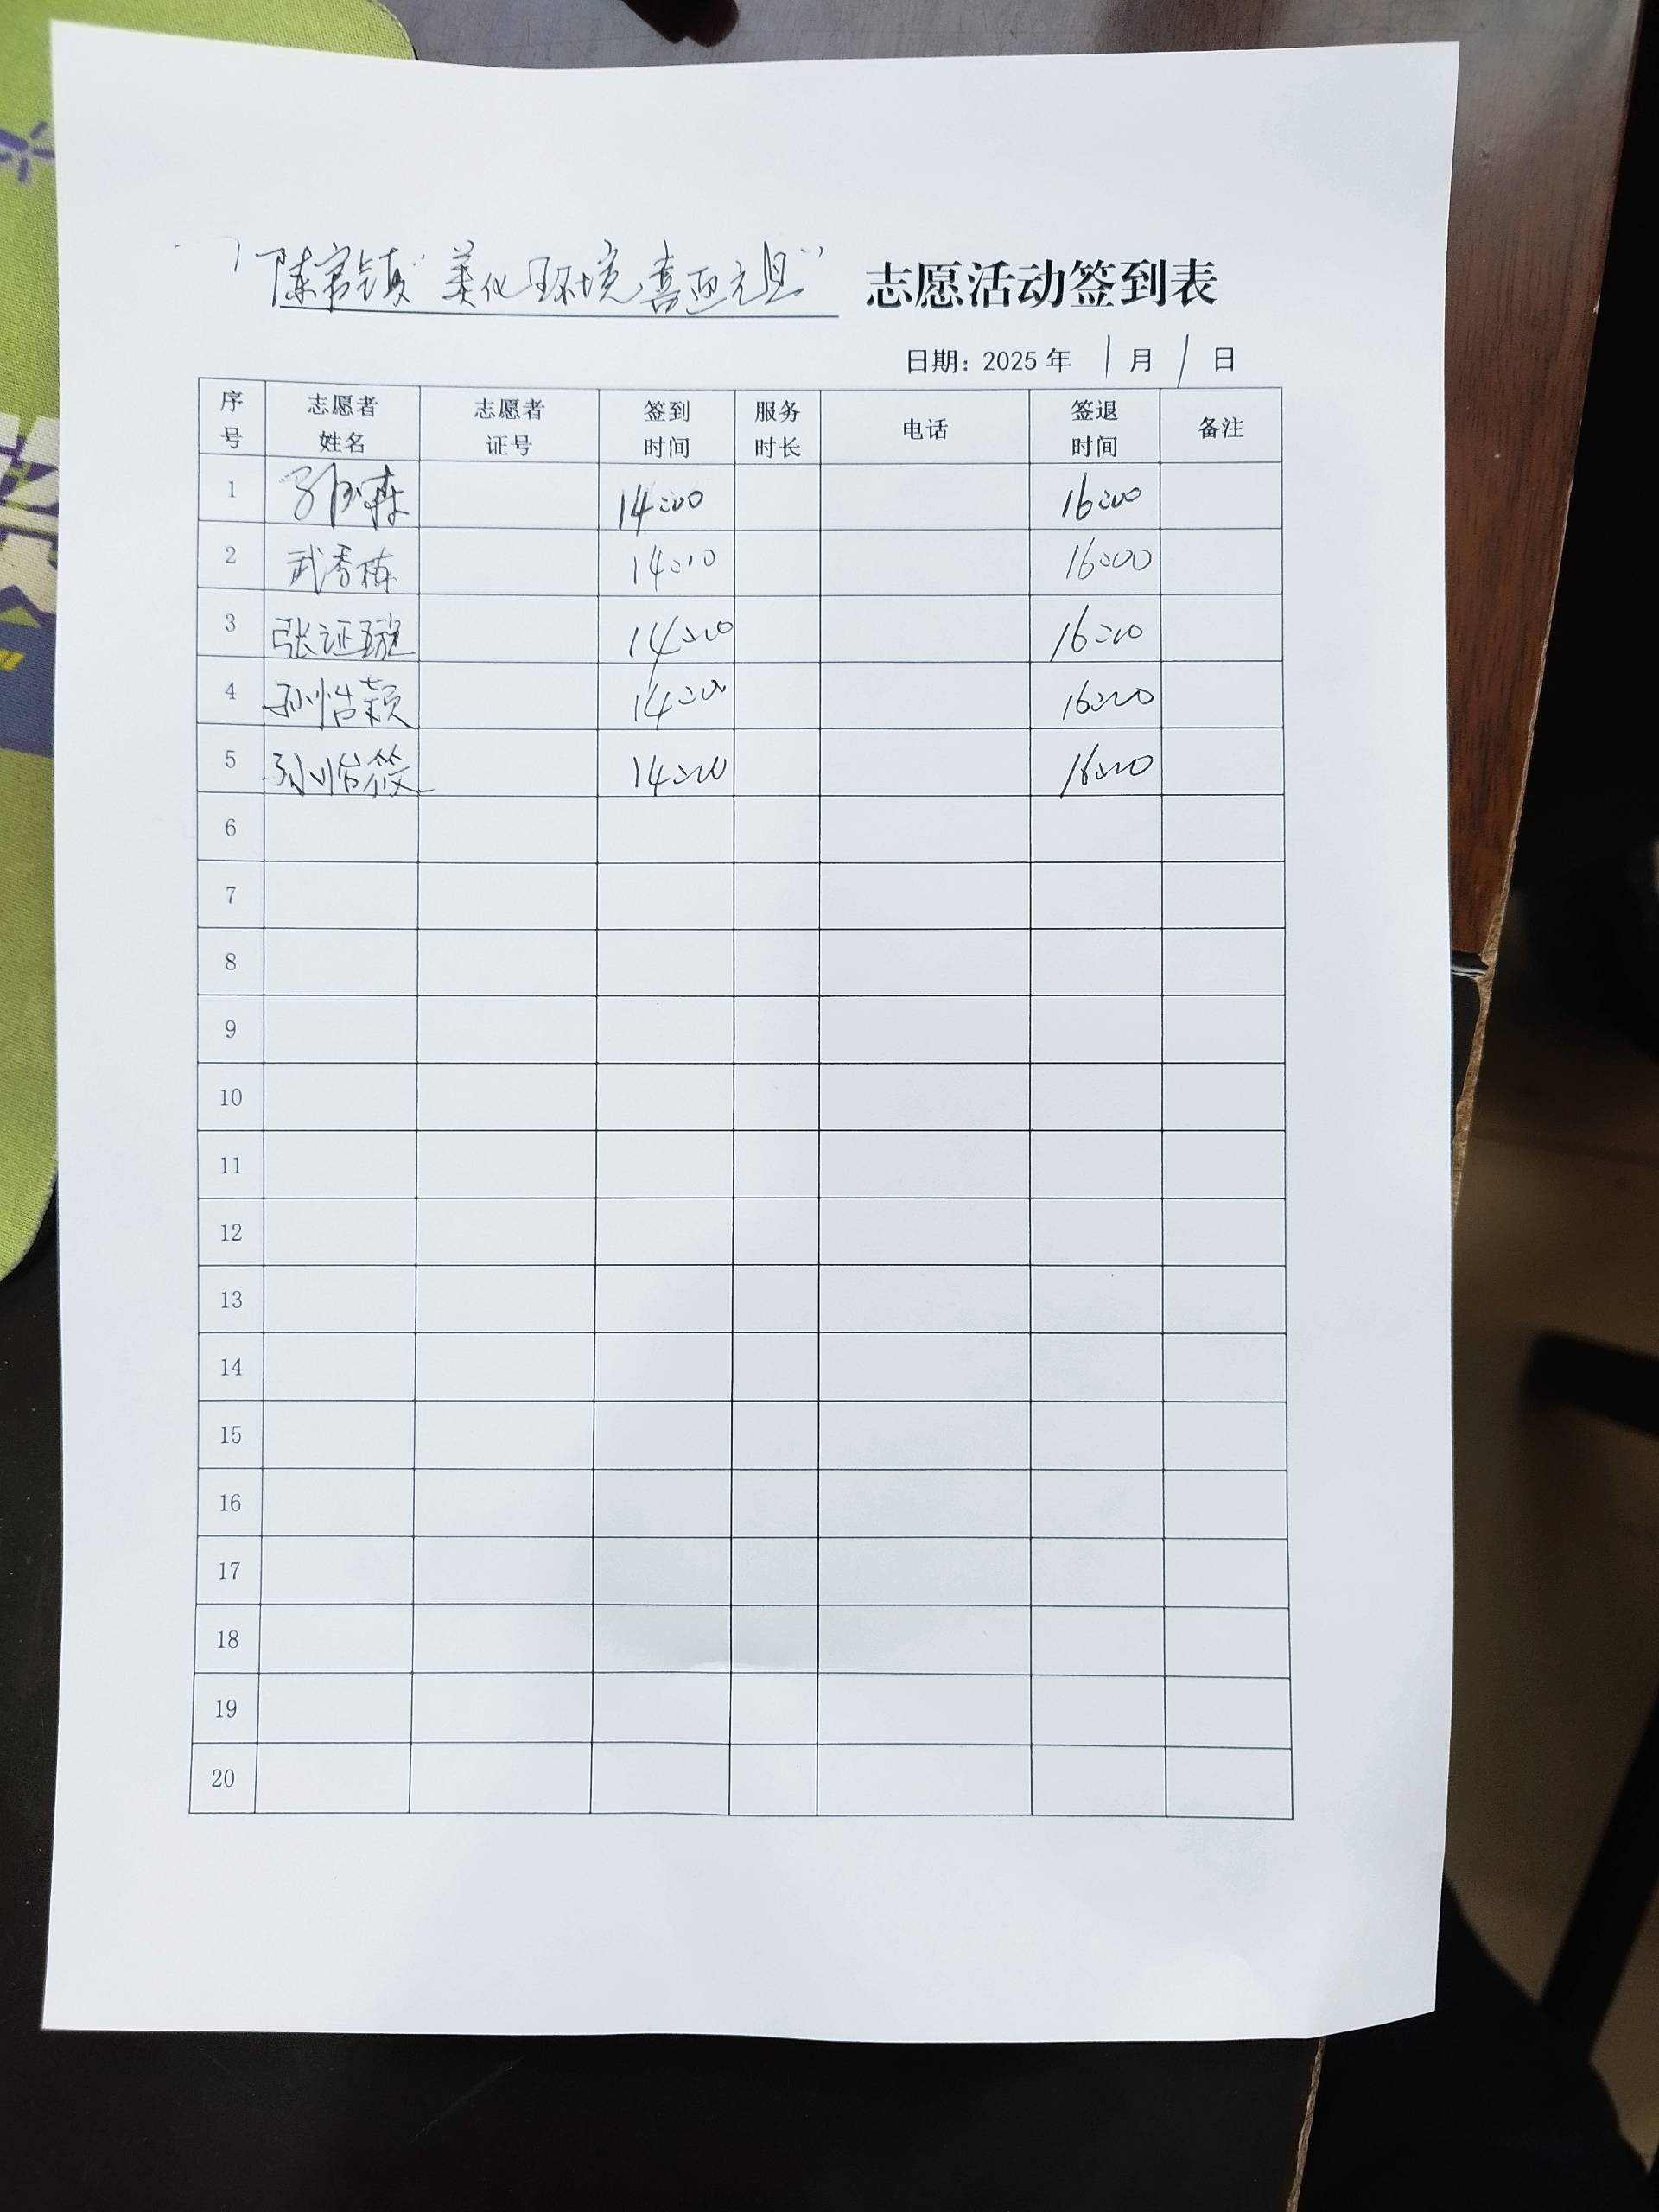 陈官镇“美化环境喜迎元旦” 志愿活动签到表
日期：2025 年 1 月 1 日
序号 志愿者姓名 志愿者证号 签到时间 服务时长 电话 签退时间 备注
1 14:00 16:00
2 武秀栋 14:10 16:00
3 张证璇 14:00 16:00
4 孙怡颖 14:00 16:00
5 孙怡筱 14:00 16:00
6
7
8
9
10
11
12
13
14
15
16
17
18
19
20